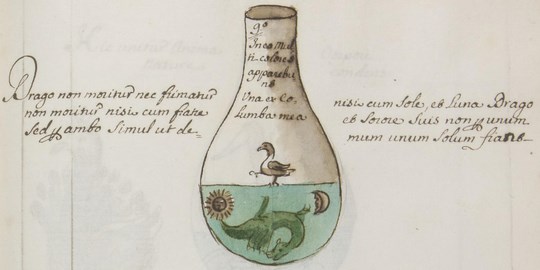 9º
In eo Mul
ti colores
apparebu
nt
Una ex Co,
lumba mea
Drago non moritur nec fumatur
non moritur nisi cum fratre
sed p ambo simul ut de=
nisi cum Sole, et Luna Drago
et Sorore suis non p unum
mum unum Solum fratre